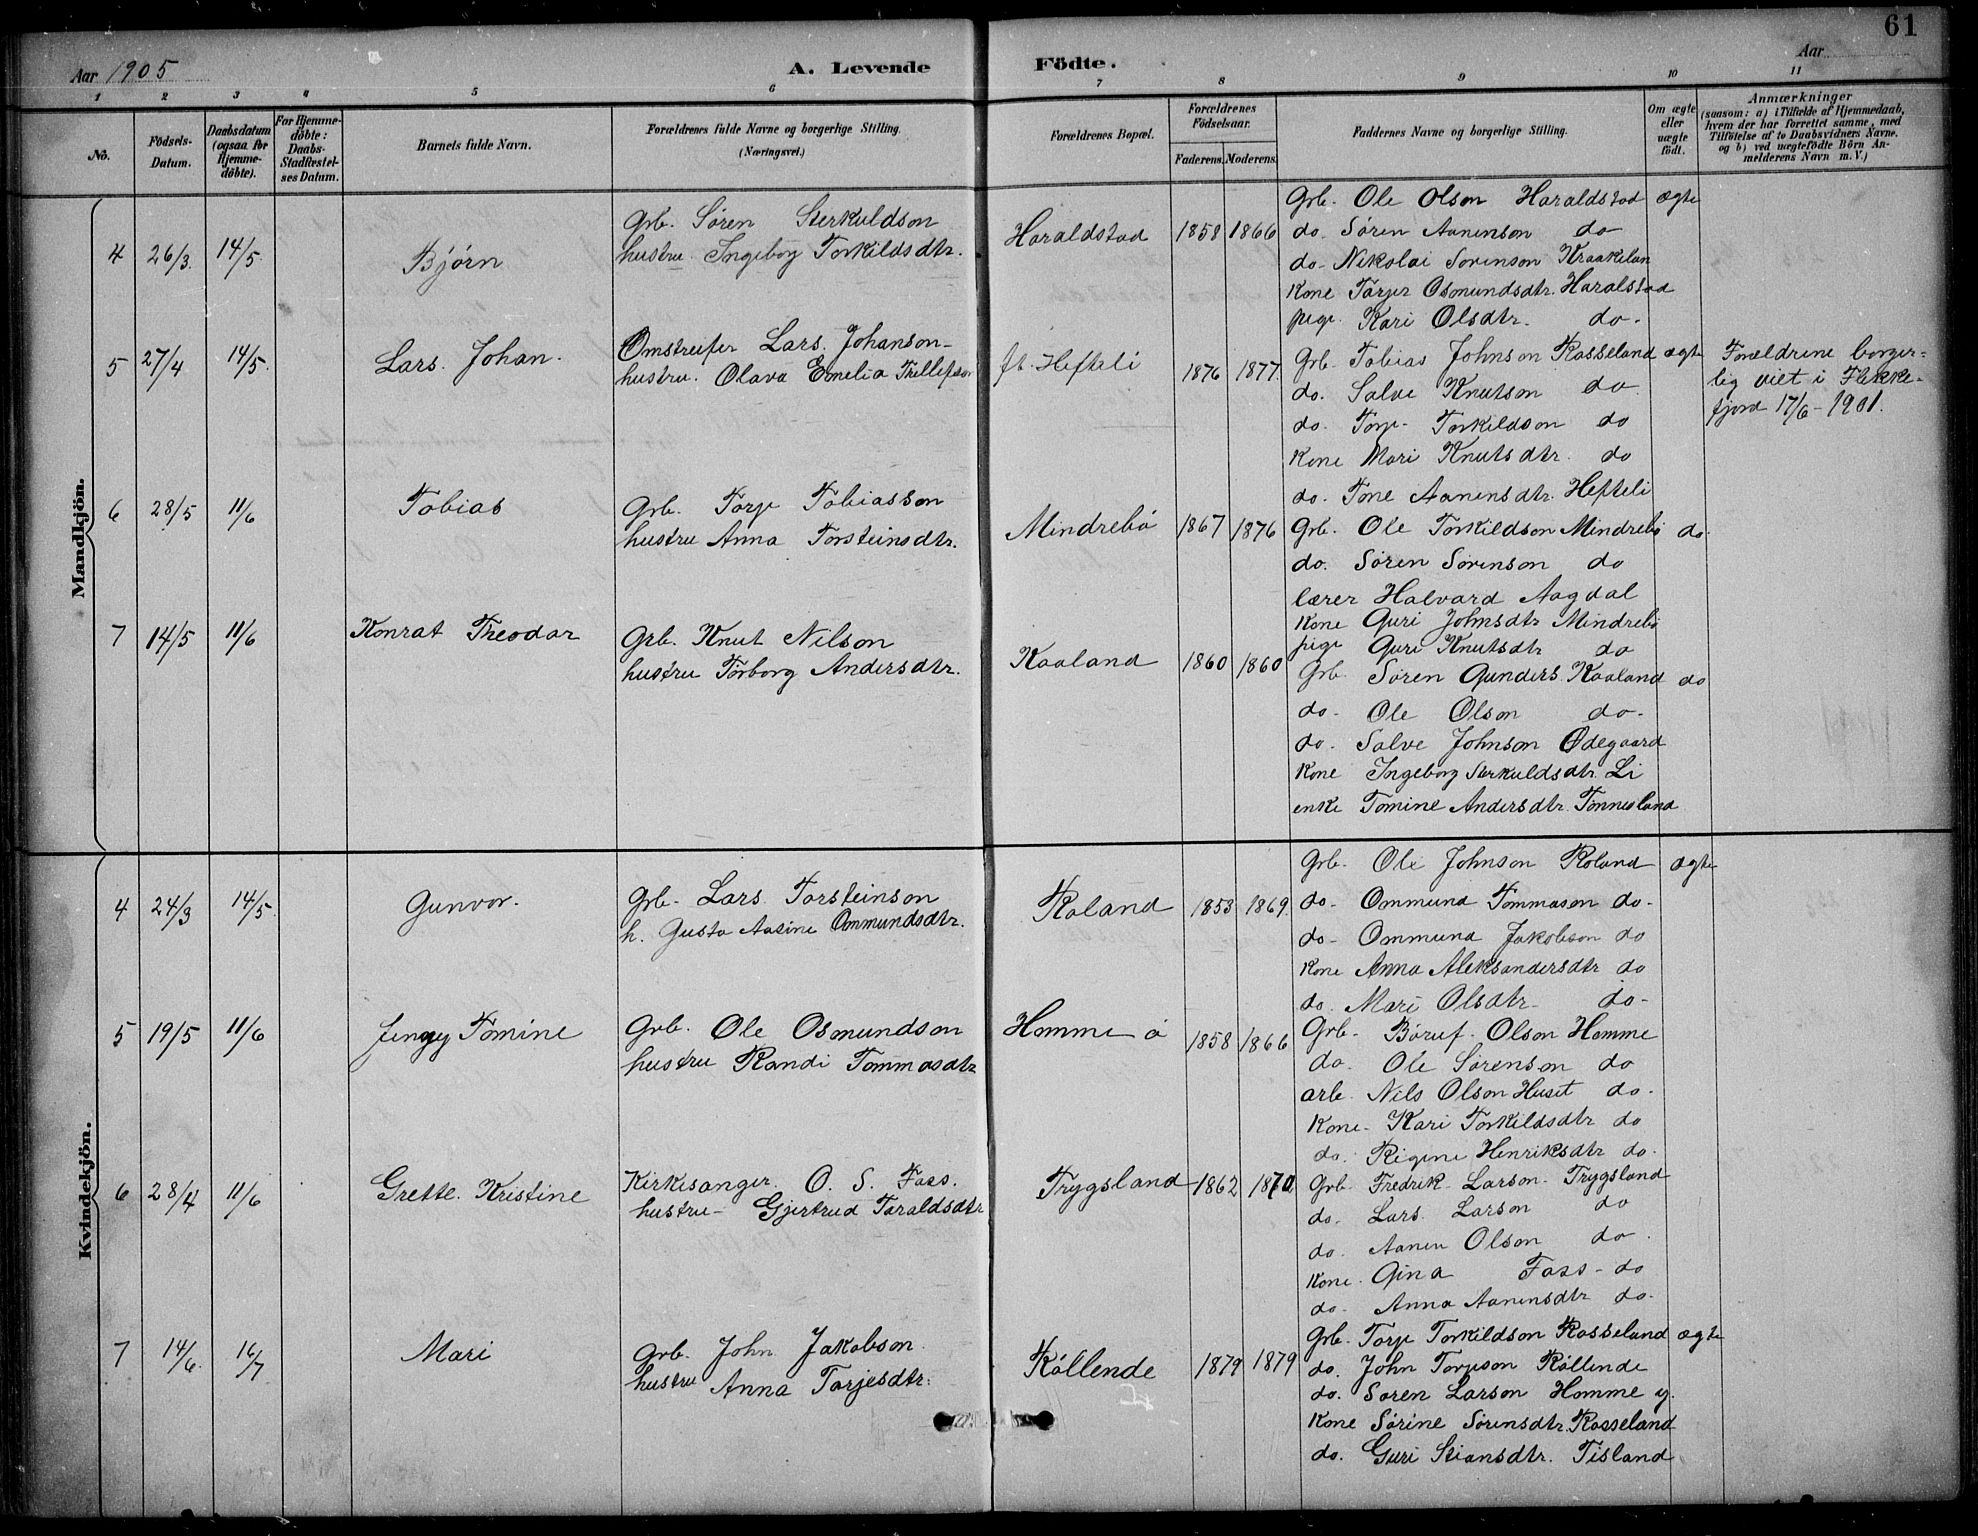 61
Aar 1905
A. Levende Födte.
Aar
1 2 3 4 5 6 7 8 9 10 11
No.
Födsels-Datum.
Daabsdatum (ogsaa for Hjemme-döbte).
For Hjemme-döbte: Daabs-Stadfæstel-ses Datum.
Barnets fulde Navn.
Forældrenes fulde Navne og borgerlige Stilling.
(Næringsvei.)
Forældrenes Bopæl.
Forældrenes Födselsaar.
Faderens. Moderens.
Faddernes Navne og borgerlige Stilling.
Om ægte eller uægte födt.
Anmærkninger
(saasom: a) i Tilfælde af Hjemmedaab,
hvem der har forrettet samme, med
Tilföielse af to Daabsvidners Navne.
og b) ved uægtefödte Börn An-
melderens Navn m. V.)
Mandkjön.
4 26/3. 14/5. Bjørn
Grb. Søren Sterkuldson
hustru. Ingeborg Torkildsdtr.
Haraldstad 1858 1866
Grb. Ole Olson Haraldstad ægte
do. Søren Aanenson do
do- Nikolai Sørenson Kraakelan
Kone Tarjer Osmundsdtr. Haralstad
pige. Kari Olsdtr. do.
5 27/4 14/5. Lars. Johan.
Omstreifer Lars. Johanson-
hustru. Olava Emelia
ft. Hefteli 1876 1877.
Grb. Tobias Johnson Rosseland ægte
do. Salve Knutson do
do. Torje Torkildson do
Kone Mari Knutsdtr. do
do. Tone Aanensdtr. Hefteli
Forældrene borger=
lig viet i Flekke-
fjord 17/6-1901.
6 28/5 11/6 Tobias
Grb. Torje Tobiasson
hustru Anna Torsteinsdtr.
Mindrebø 1867 1876
Grb. Ole Torkildson Mindrebø do.
do. Søren Sørenson do
lærer Halvard Aagdal
Kone Guri Johnsdtr Mindrebø
pige Guri Knutsdtr do
7 14/5 11/6 Konrat Theodor
Grb. Knut Nilson
hustru Torborg Andersdtr.
Kaaland 1860 1860
Grb. Søren Gunders. Kaaland do
do- Ole Olson do.
do. Salve Johnson Ødegaard
Kone Ingeborg Sterkuldsdtr. Li
enke Tomine Andersdtr. Tønnesland
Kvindekjön.
4 24/3 14/5. Gunvor.
Grb- Lars Torsteinson
h. Gusta Aasine Ommundsdtr.
Roland 1853 1869.
Grb. Ole Johnson Roland ægte
do- Ommund Tommason do-
do- Ommund Jakobson do
Kone Anna Aleksandersdtr do
do. Mari Olsdtr- do-
5 19/5 11/6 Jenny Tomine
Grb. Ole Osmundson
hustru Randi Tommasdtr
Homme ø 1858 1866
Grb- Børuf. Olson Homme
do. Ole Sørenson do
arb. Nils Olson Huset do.
Kone- Kari Torkildsdtr do
do. Regine Henriksdtr do.
6 28/4 11/6 Grette. Kristine
Kirkesanger. O. S. Foss.
hustru- Gjertrud Taraldsdtr
Trygsland 1862 1870
Grb. Fredrik Larson. Trygsland
do. Lars. Larson do
do. Aanen Olson do.
Kone. Gina Foss- do
do. Anna Aanensdtr do.
7 14/6. 16/7 Mari
Grb. John Jakobson.
hustru Anna Torjesdtr.
Røllende 1879 1879
Grb. Torje Torkildson Rosseland ægte
do. John Torjeson Røllende
do. Søren Larson Homme y.
Kone Sørine Sørensdtr. Rosseland
do. Guri Stiansdtr. Tisland